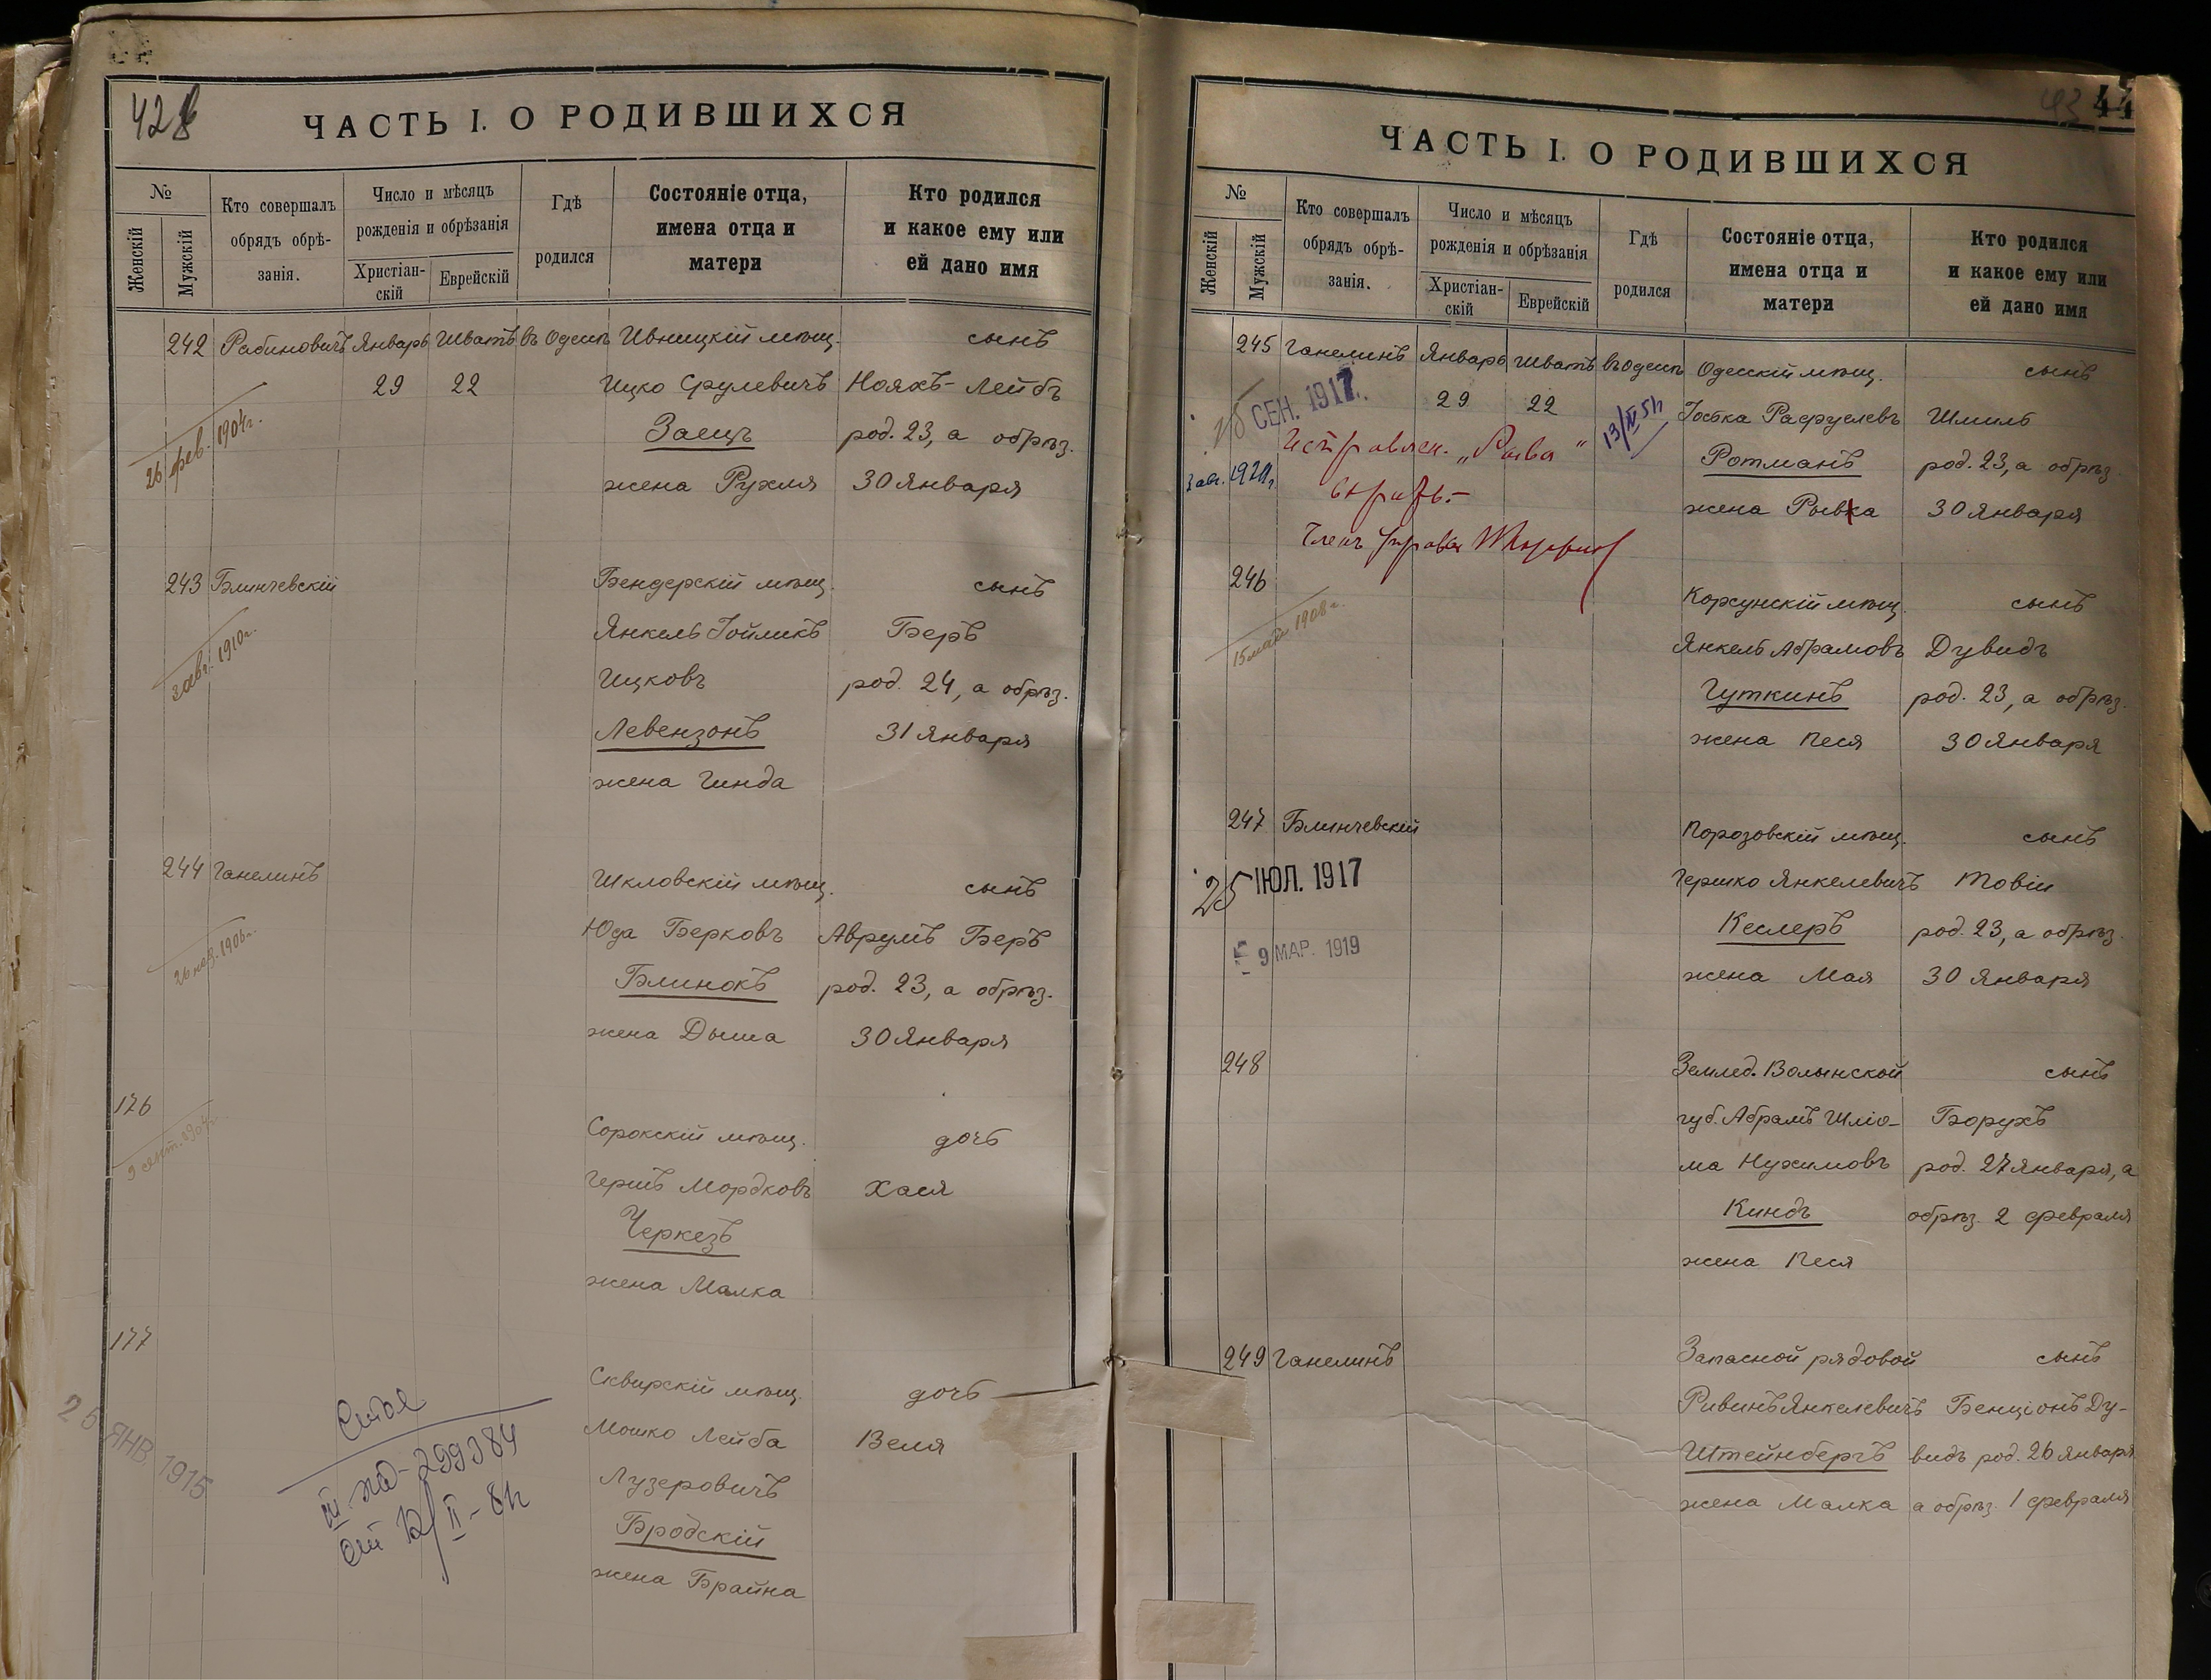 42
ЧАСТЬ I. О РОДИВШИХСЯ
№
Женскій
Мужскій
Кто совершалъ
обрядъ обрѣ-
занія.
Число и мѣсяцъ
рожденія и обрѣзанія
Христіан-
скій
Еврейскій
Гдѣ
родился
Состояніе отца,
имена отца и
матери
Кто родился
и какое ему или
ей дано имя
242 Рабиновичъ Январь Шватъ въ Одессѣ Ивницкій мѣщ. сынъ
29 22 Ицко Срулевичъ Нояхъ-Лейбъ
Заецъ род. 23, а обрѣз.
26 фев. 1904г.
жена Рухля 30 Января
243 Блинчевскій Бендерскій мѣщ. сынъ
Янкель Іойликъ Беръ
3 авг. 1910г.
Ицковъ род. 24, а обрѣз.
Левензонъ 31 Января
жена Гинда
244 Ганелинъ Шкловскій мѣщ. сынъ
Юда Берковъ Аврумъ Беръ
1906г.
Блинокъ род. 23, а обрѣз.
жена Дыша 30 Января
176 Сорокскій мѣщ. дочь
9 сент. 1904г.
Гершъ Мордковъ Хася
Черкезъ
жена Малка
177 Сквирскій мѣщ. дочь
25 ЯНВ. 1915
Мошко Лейба Веля
III 299384
Лузеровичъ
Бродскій
жена Брайна
43 44
ЧАСТЬ I. О РОДИВШИХСЯ
№
Женскій
Мужскій
Кто совершалъ
обрядъ обрѣ-
занія.
Число и мѣсяцъ
рожденія и обрѣзанія
Христіан-
скій
Еврейскій
Гдѣ
родился
Состояніе отца,
имена отца и
матери
Кто родился
и какое ему или
ей дано имя
245 Ганелинъ Январь Шватъ въ Одессѣ Одесскій мѣщ. сынъ
СЕН. 1917.
29 22 Шмиль
Ротманъ род. 23, а обрѣз.
жена Рывка 30 Января
Членъ
246 Корсунскій мѣщ. сынъ
15 мая 1908г.
Янкель Абрамовъ Дувидъ
Гуткинъ род. 23, а обрѣз.
жена Песя 30 Января
247 Блинчевскій Порозовскій мѣщ. сынъ
25 ІЮЛ. 1917
Гершко Янкелевичъ Товіи
9 МАР. 1919
Кеслеръ род. 23, а обрѣз.
жена Мая 30 Января
248 Землед. Волынской сынъ
губ. Абрамъ Шлio- Борухъ
ма Нухимовъ род. 27 Января, а
Киндъ обрѣз. 2 февраля
жена Песя
249 Ганелинъ Запасной рядовой сынъ
Рувинъ Янкелевичъ Бенціонъ Ду-
Штейнбергъ видъ род. 26 Января
жена Малка а обрѣз. 1 февраля